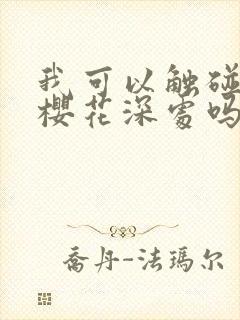 我可以触碰
樱花深处吗
乔丹-法玛尔